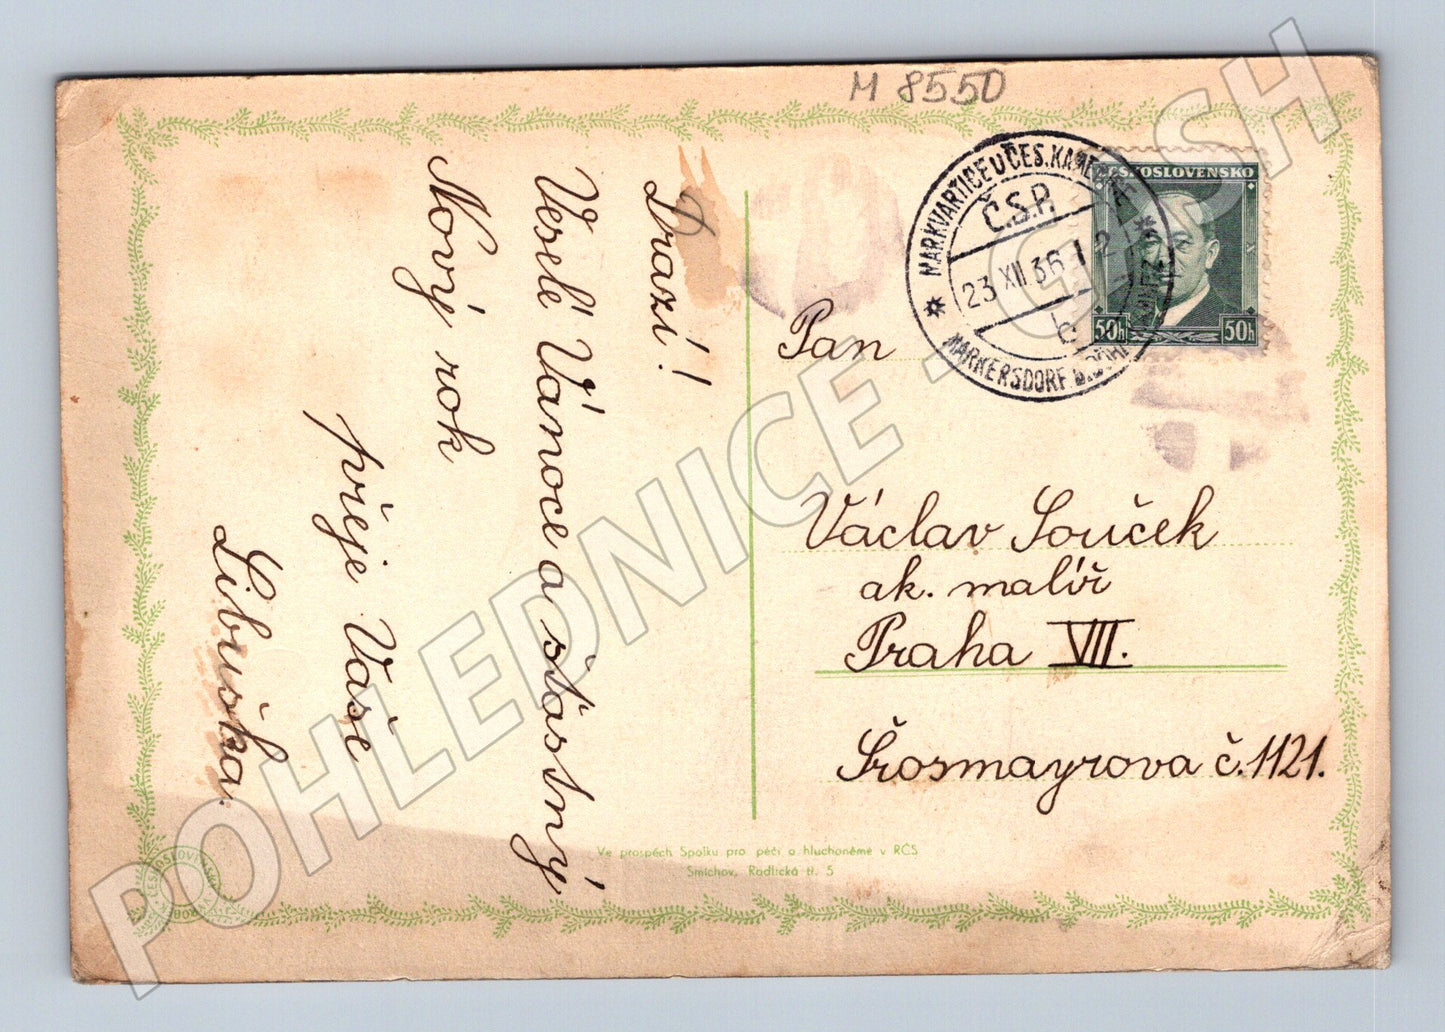 M 8550
MARKVARTICE U ČES. KAMENICE
Č.S.R.
23 XII 36 12
MARKERSDORF B. BÖHM.
ČESKOSLOVENSKO
50h 50h
Drazí!
Veselé Vánoce a šťastný
Nový rok
přeje Vaše
Libuška.
Pan
Václav Souček
ak. malíř
Praha VII.
Šrosmayrova č. 1121.
Ve prospěch Spolku pro péči o hluchoněmé v RČS
Smíchov, Radlická tř. 5
POHLEDNICE - CASH